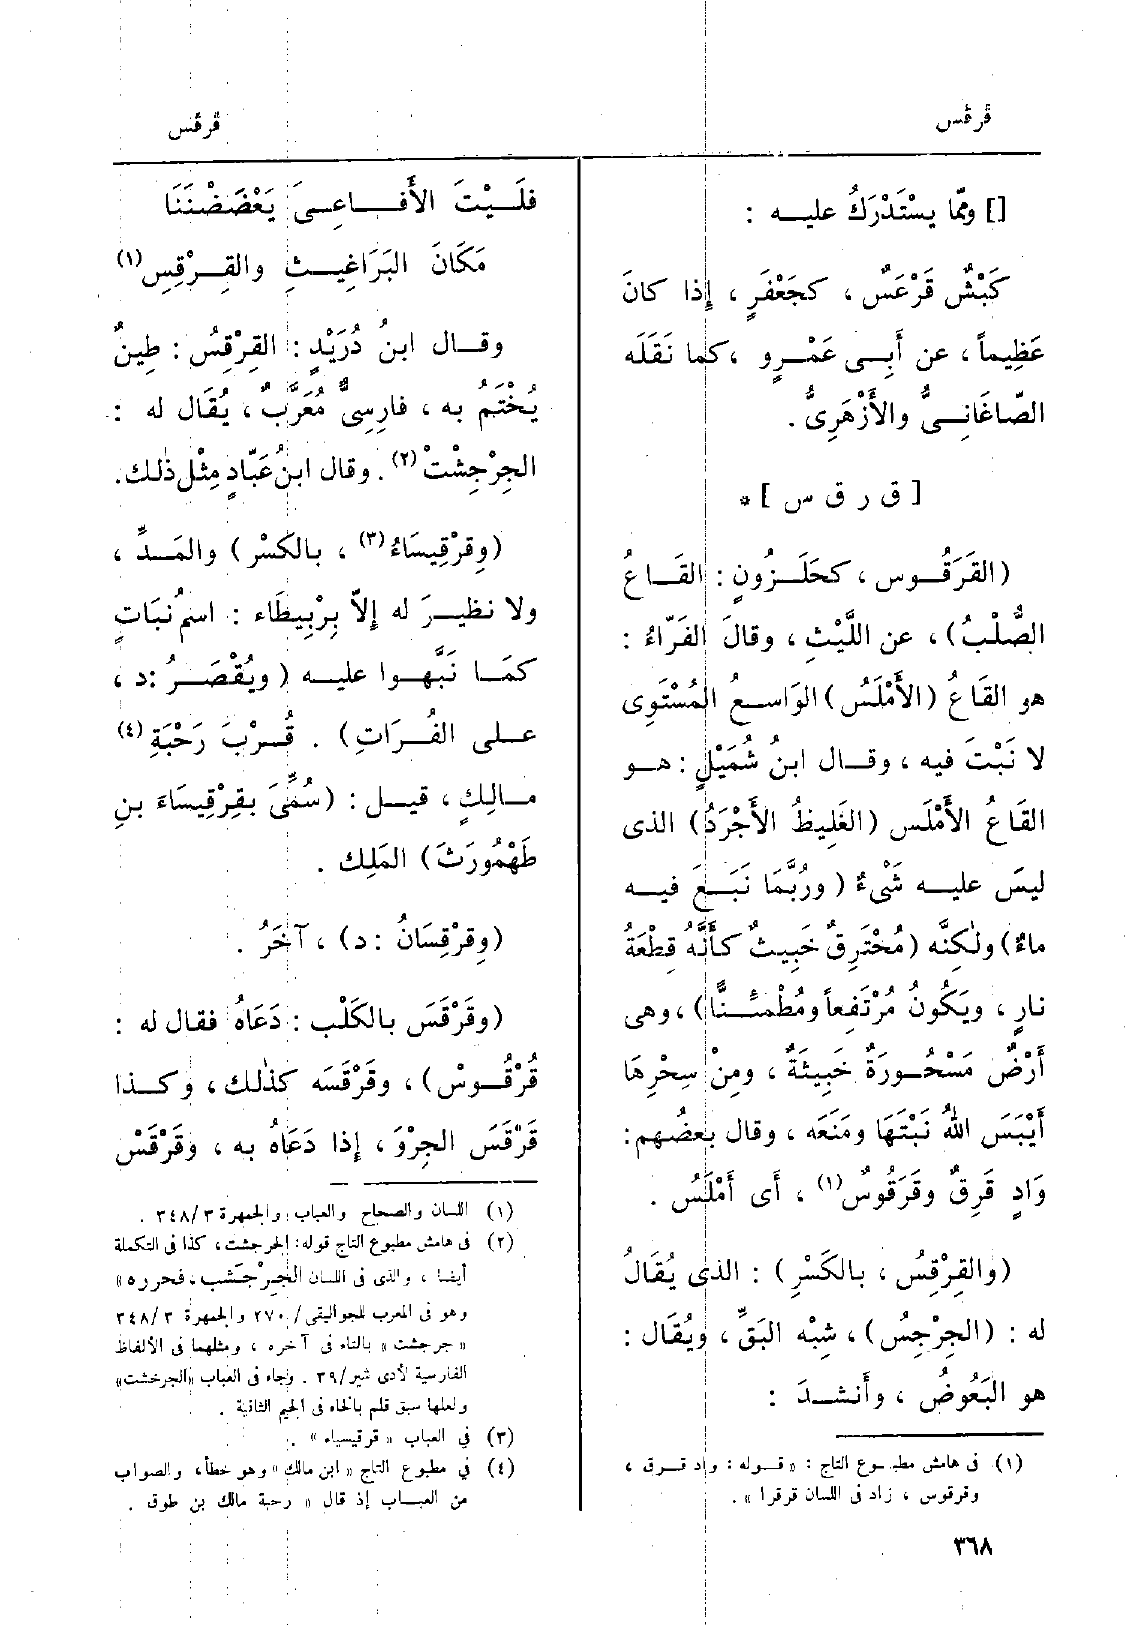 قرقس
[] وممّا يُسْتَدْرَكُ عليـه :
كَبْشٌ قَرْعَسٌ ، كجَعْفَرٍ ، إِذا كانَ
عَظِيماً ، عن أَبِـى عَمْـرٍو ، كما نَقَلَه
الصّاغَانِـىُّ والأَزْهَرِىُّ .
[ ق ر ق س ] *
(القَرَقُـوس ، كحَلَـزُونٍ : القَـاعُ
الصُّلْبُ) ، عن اللَّيْثِ ، وقالَ الفَرّاءُ :
هو القَاعُ (الأَمْلَسُ) الوَاسِـعُ المُسْتَوِى
لا نَبْتَ فيه ، وقـال ابنُ شُمَيْلٍ : هـو
القَاعُ الأَمْلَس (الغَلِيظُ الأَجْرَدُ) الذى
ليسَ عليـه شَىْءٌ (ورُبَّمَا نَبَـعَ فيـه
ماءٌ) ولٰكِنَّه (مُحْتَرِقٌ خَبِيثٌ كأَنَّهُ قِطْعَةُ
نارٍ ، ويَكُونُ مُرْتَفِعاً ومُطْمَئِـنًّا) ، وهى
أَرْضٌ مَسْحُـورَةٌ خَبِيثَةٌ ، ومِنْ سِحْرِهَا
أَيْبَسَ اللهُ نَبْتَها ومَنَعَه ، وقال بعضُهم :
وَادٍ قَرِقٌ وقَرَقُوسٌ(١) ، أَى أَمْلَسُ .
(والقِرْقِسُ ، بالكَسْرِ) : الذى يُقَالُ
له : (الجِرْجِسُ) ، شِبْه البَقِّ ، ويُقَال :
هو البَعُوضُ ، وأَنشـدَ :
(١) فى هامش مطبـوع التاج : « قـوله : واد قـرق ،
وقرقوس ، زاد فى اللسان قرقرا » .
٣٦٨
قرقس
فلَيْـتَ الأَفـاعِـىَ يَعْضَضْنَنَا
مَكَانَ البَرَاغِيـثِ والقِـرْقِسِ(١)
وقـال ابنُ دُرَيْدٍ : القِرْقِسُ : طِينٌ
يُخْتَمُ به ، فارِسِىٌّ مُعَرَّبٌ ، يُقَال له :
الجِرْجِشْتْ(٢) . وقال ابنُ عَبّادٍ مِثْل ذٰلك .
(وقِرْقِيسَاءُ(٣) ، بالكَسْر) والمَـدِّ ،
ولا نظيـرَ له إِلاّ بِرْبِيطَاء : اسمُ نَبَاتٍ
كمَـا نَبَّهـوا عليـه (ويُقْصَـرُ : د ،
عـلى الفُـرَاتِ) . قُـرْبَ رَحْبَةِ(٤)
مـالِكٍ ، قيـل : (سُمِّىَ بقِرْقِيسَاءَ بنِ
طَهْمُورَثَ) المَلِك .
(وقِرْقِسَانُ : د) ، آخَرُ .
(وقَرْقَسَ بالكَلْبِ : دَعَاهُ فقال له :
قُرْقُـوسْ) ، وقَرْقَسَه كذٰلك ، وكـذا
قَرْقَسَ الجِرْوَ ، إذا دَعَاهُ به ، وقَرْقَسْ
(١) اللسان والصحاح والعباب والجمهرة ٣٤٨/٣ .
(٢) فى هامش مطبوع التاج قوله : الجرجشت ، كذا فى التكملة
أيضا ، والذى فى اللسان الجِرْجَشب ، فحرره »
وهو فى المعرب للجواليقى / ٢٧٠ والجمهرة ٣٤٨/٣
« جرجشت » بالتاء فى آخره ، ومثلهما فى الألفاظ
الفارسية لأدى شير/٣٩ . وجاء فى العباب «الجرخشت»
ولعلها سبق قلم بالخاء فى الجيم الثانية .
(٣) فى العباب « قرقيسياء » .
(٤) فى مطبوع التاج « ابن مالك » وهو خطأ ، والصواب
من العبـاب إذ قال « رحبة مالك بن طوق .